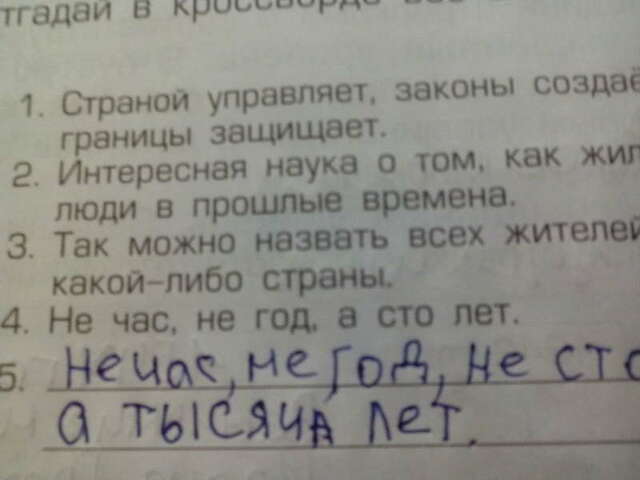 тгадай в кроссворде
1. Страной управляет, законы создаё
границы защищает.
2. Интересная наука о том, как жил
люди в прошлые времена.
3. Так можно назвать всех жителей
какой-либо страны.
4. Не час, не год, а сто лет.
5. Не час, не год, не сто
а тысяча лет.